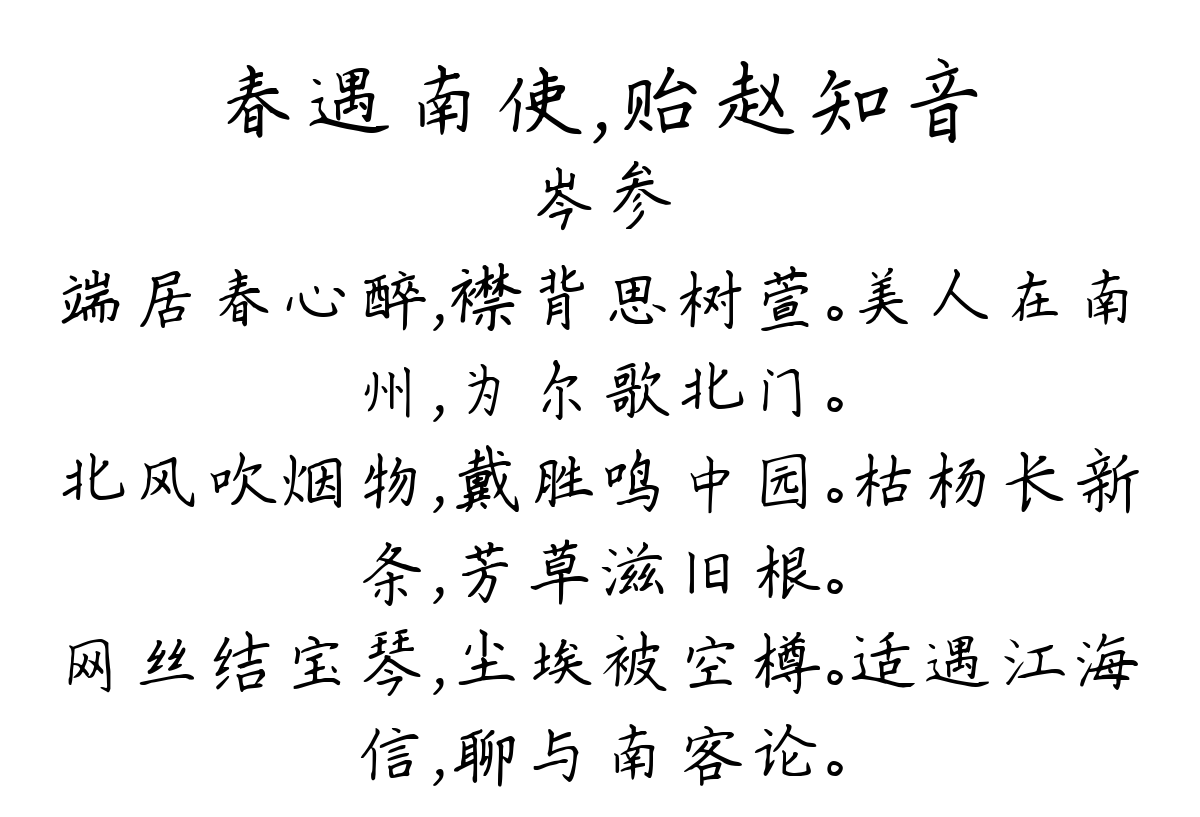 春遇南使,贻赵知音
岑参
端居春心醉,襟背思树萱。美人在南
州,为尔歌北门。
北风吹烟物,戴胜鸣中园。枯杨长新
条,芳草滋旧根。
网丝结宝琴,尘埃被空樽。适遇江海
信,聊与南客论。